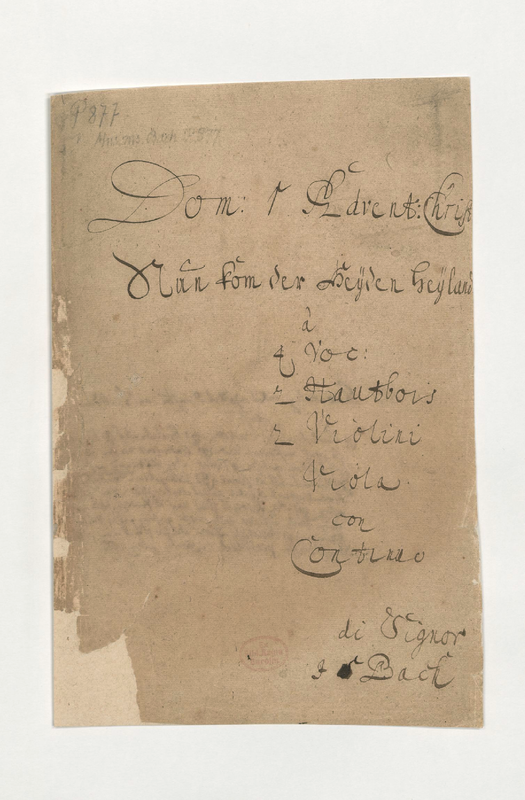 P 877
Mus. ms. Bach P 877
Dom: 1 Advent: Christ
Nun kom der Heÿden Heÿland
à
4 Voc:
2 Hautbois
2 Violini
Viola
con
Continuo
di Signor
J S Bach